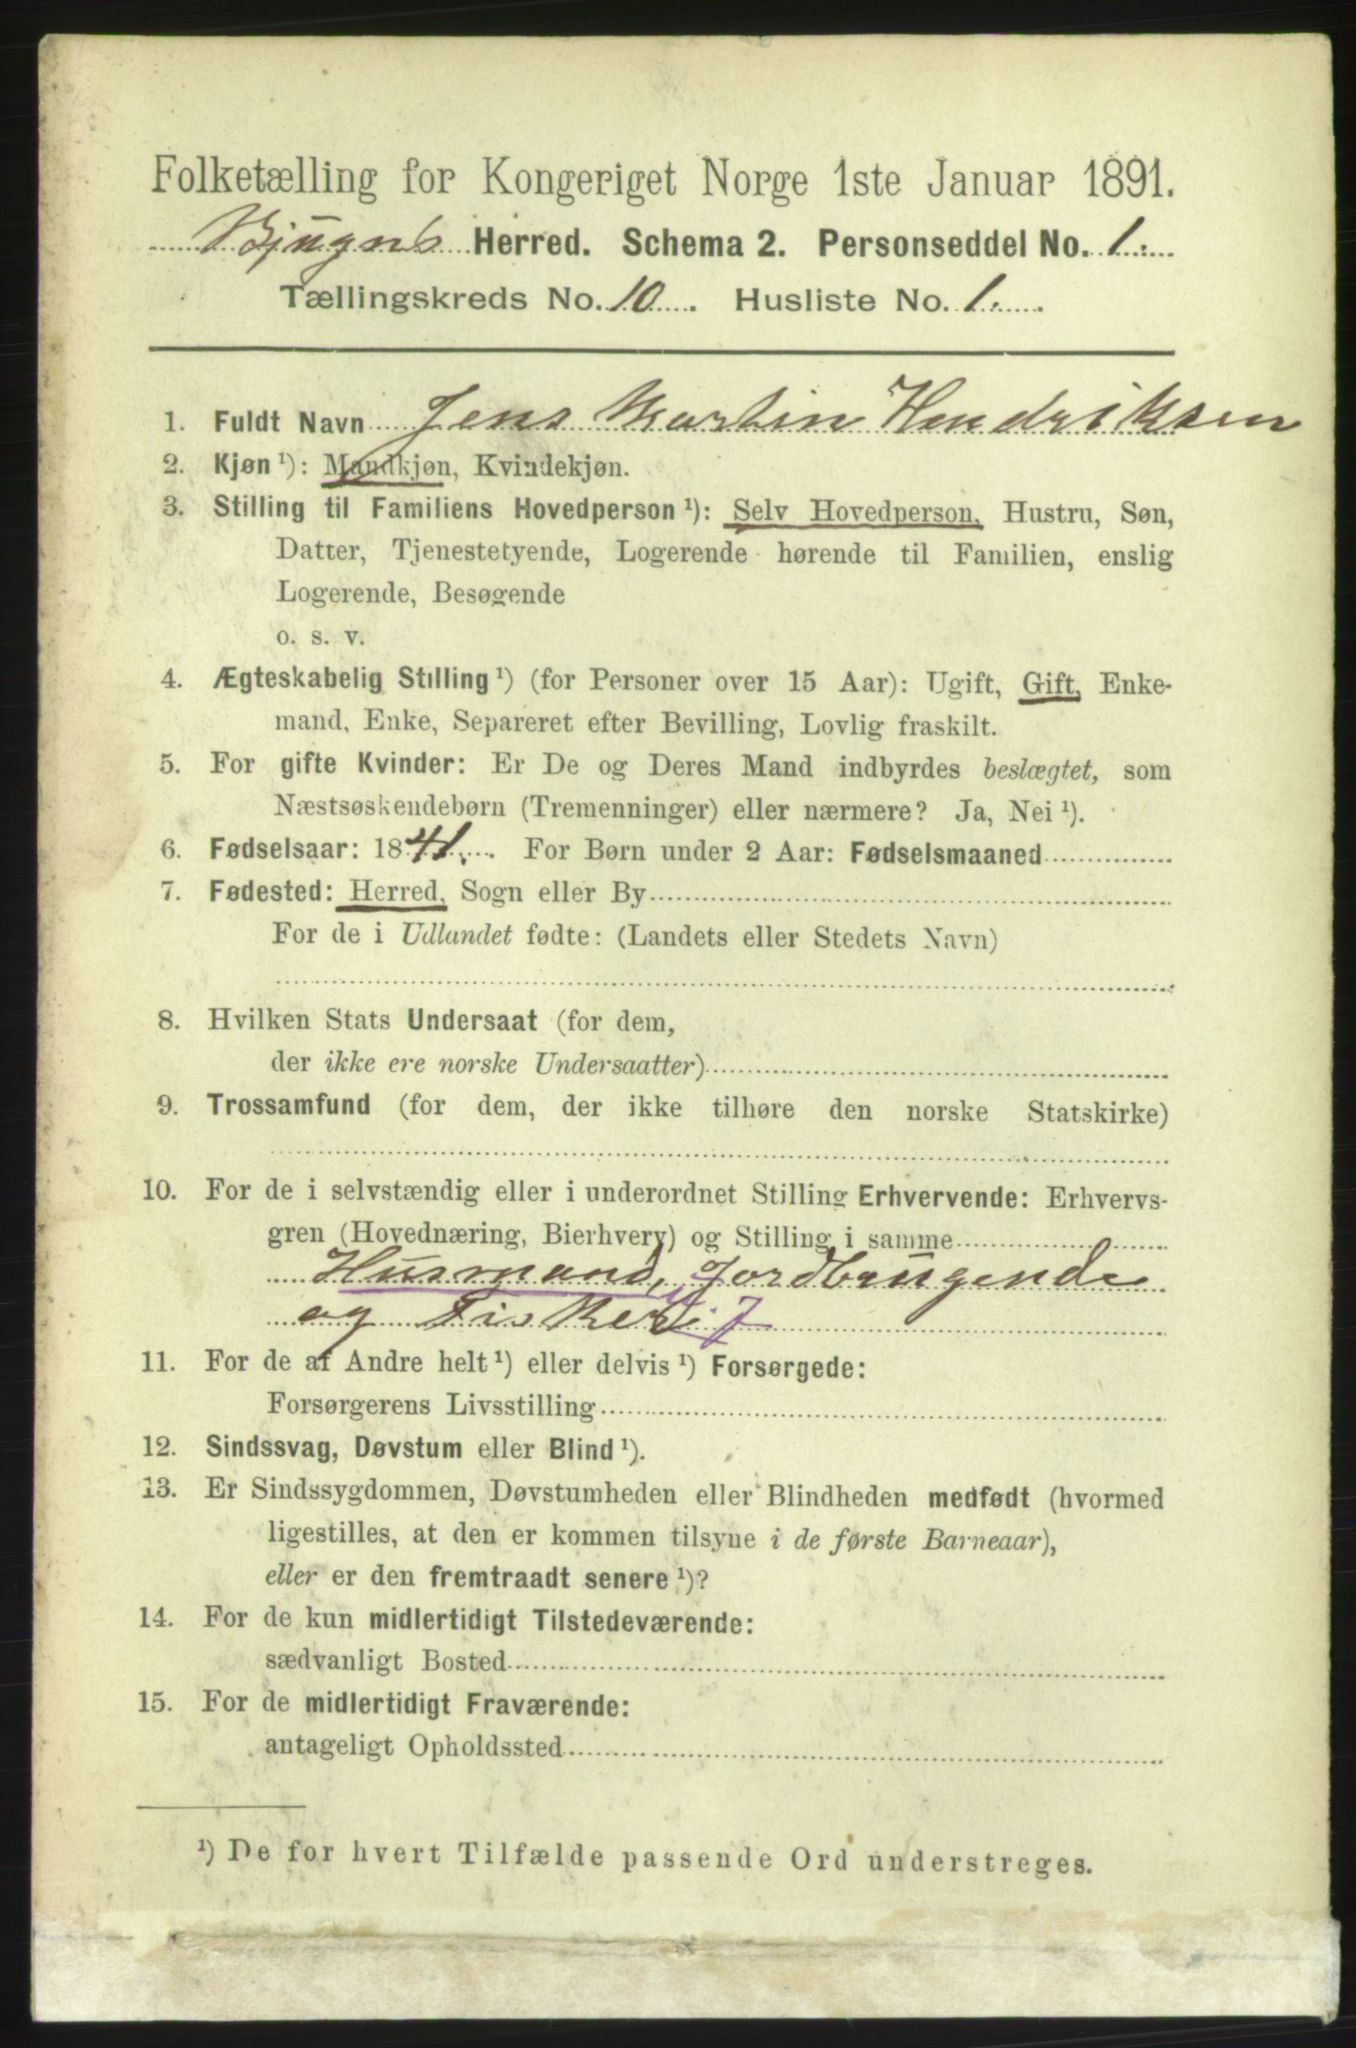 Folketælling for Kongeriget Norge 1ste Januar 1891.
Bjugns Herred. Schema 2. Personseddel No. 1.
Tællingskreds No. 10 . Husliste No. 1. .
1. Fuldt Navn Jens Martin Hendriksen
2. Kjøn ¹): Mandkjøn, Kvindekjøn.
3. Stilling til Familiens Hovedperson ¹): Selv Hovedperson, Hustru, Søn,
Datter, Tjenestetyende, Logerende hørende til Familien, enslig
Logerende, Besøgende
o. s. v.
4. Ægteskabelig Stilling ¹) (for Personer over 15 Aar): Ugift, Gift, Enke-
mand, Enke, Separeret efter Bevilling, Lovlig fraskilt.
5. For gifte Kvinder: Er De og Deres Mand indbyrdes beslægtet, som
Næstsøskendebørn (Tremenninger) eller nærmere? Ja, Nei ¹).
6. Fødselsaar: 1841. . For Børn under 2 Aar: Fødselsmaaned
7. Fødested: Herred, Sogn eller By
For de i Udlandet fødte: (Landets eller Stedets Navn)
8. Hvilken Stats Undersaat (for dem,
der ikke ere norske Undersaatter)
9. Trossamfund (for dem, der ikke tilhøre den norske Statskirke)
10. For de i selvstændig eller i underordnet Stilling Erhvervende: Erhvervs-
gren (Hovednæring, Bierhverv) og Stilling i samme
Husmand, Jordbrugende
og Fisker
11. For de af Andre helt ¹) eller delvis ¹) Forsørgede:
Forsørgerens Livsstilling
12. Sindssvag, Døvstum eller Blind ¹).
13. Er Sindssygdommen, Døvstumheden eller Blindheden medfødt (hvormed
ligestilles, at den er kommen tilsyne i de første Barneaar),
eller er den fremtraadt senere ¹)?
14. For de kun midlertidigt Tilstedeværende:
sædvanligt Bosted
15. For de midlertidigt Fraværende:
antageligt Opholdssted
¹) De for hvert Tilfælde passende Ord understreges.